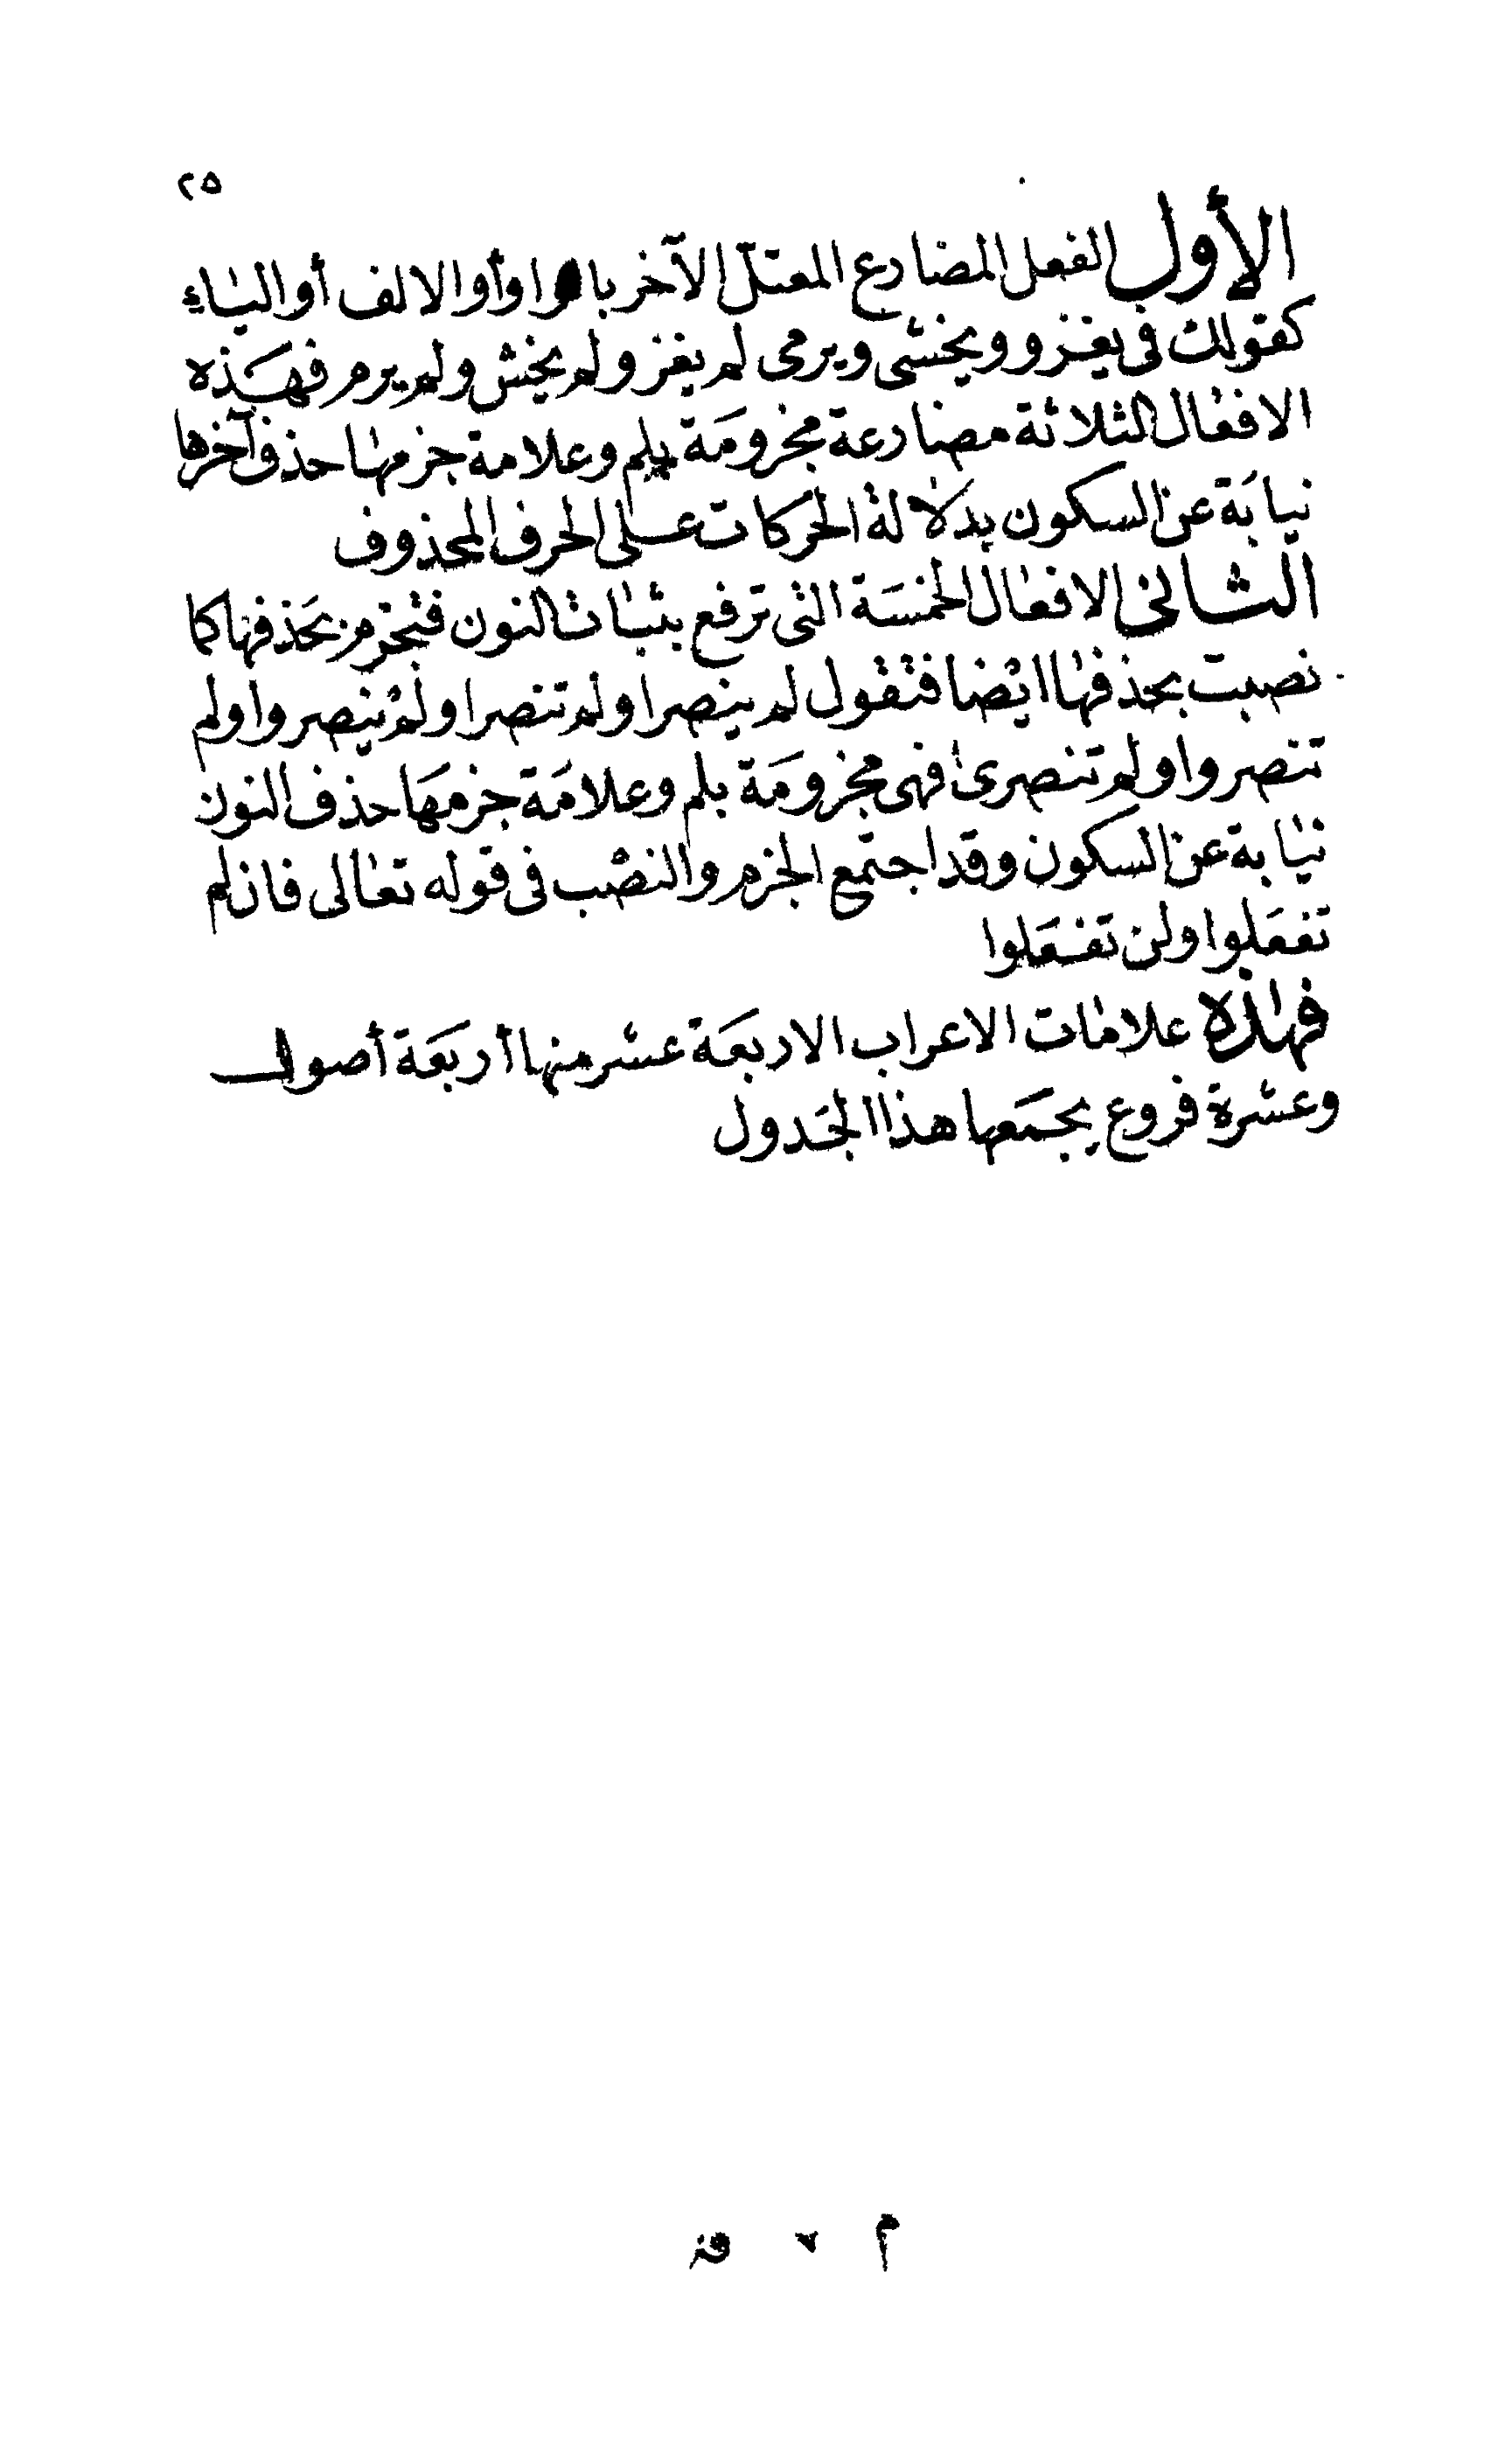 ٢٥
الأول الفعل المضارع المعتلّ الآخر بالواو أو الالف أو اليٰاء
كقولك في يغزو ويخشى ويرمى لم يغز ولم يخش ولم يرم فهَذه
الافعٰال الثلاثة مضارعة مجزومَة بلم وعلامة جزمهٰا حذف آخرها
نيابَة عن السكون بدلالة الحركات على الحرف المحذوف
الثاني الافعٰال الخمسَة التى ترفع بثبٰات النون فتجزم بحَذفها كما
نصبت بحذفهٰا ايْضا فتقول لم ينصرا ولم تنصرا ولمْ ينصروا ولم
تنصروا ولم تنصرى فهى مجزومَة بلم وعلامَة جزمهَا حذف النون
نيٰابة عن السكون وقد اجتمع الجزم والنصْب فى قوله تعٰالى فان لم
تفعَلوا ولن تفعَلوا
فهٰذه علامٰات الاعراب الاربعَة عشر منها أربعَة أصول
وعشرة فروع يجمَعها هذا الجَدول
م ٢ قز